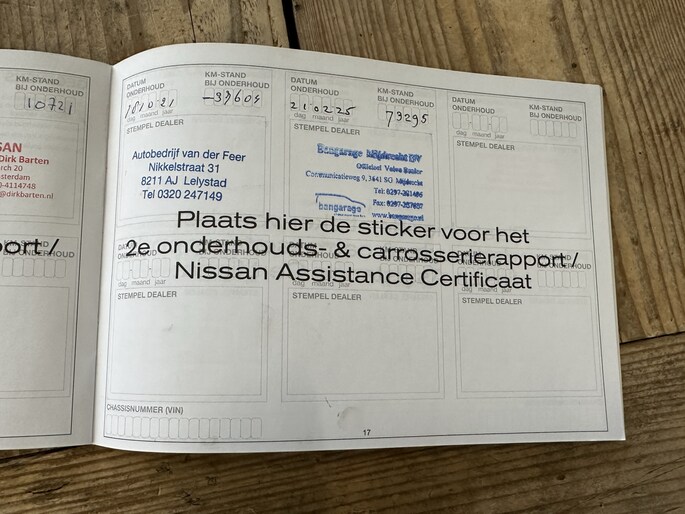 KM-STAND
BIJ ONDERHOUD
10721
SAN
Dirk Barten
rch 20
sterdam
0-4114748
@dirkbarten.nl
port /
DATUM
ONDERHOUD
KM-STAND
BIJ ONDERHOUD
dag maand jaar
STEMPEL DEALER
Autobedrijf van der Feer
Nikkelstraat 31
8211 AJ Lelystad
Tel 0320 247149
DATUM
ONDERHOUD
KM-STAND
BIJ ONDERHOUD
210225
73295
dag maand jaar
STEMPEL DEALER
Bangarage Mijdrecht BV
Officieel Volvo Dealer
Communicatieweg 9, 3641 SG Mijdrecht
bangarage
www.bangarage.nl
DATUM
ONDERHOUD
KM-STAND
BIJ ONDERHOUD
dag maand jaar
STEMPEL DEALER
Plaats hier de sticker voor het
2e onderhouds- & carrosserierapport /
Nissan Assistance Certificaat
STEMPEL DEALER
STEMPEL DEALER
STEMPEL DEALER
CHASSISNUMMER (VIN)
17